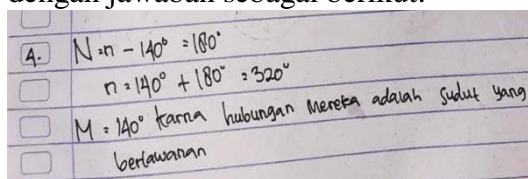 dengan jawaban sebagai berikut.
4. N = n - 140° = 180°
n = 140° + 180° = 320°
M = 140° karna hubungan mereka adalah sudut yang
berlawanan